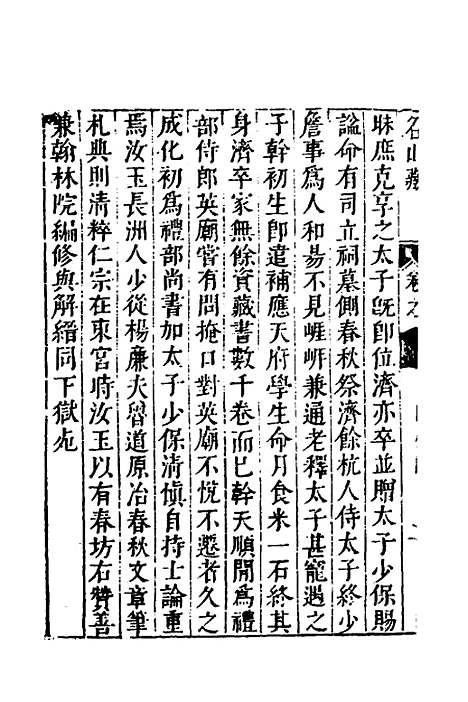 名山藏
卷之
昧庶克享之太子旣卽位濟亦卒並贈太子少保賜
謚命有司立祠墓側春秋祭濟餘杭人侍太子終少
詹事爲人和昜不見崕岍兼通老釋太子甚寵遇之
子幹初生卽遣補應天府學生命月食米一石終其
身濟卒家無餘資藏書數千卷而巳幹天順閒爲禮
部侍郎英廟甞有問掩口對英廟不悅不遷者久之
成化初爲禮部尚書加太子少保清愼自持士論重
焉汝玉長洲人少從楊廉夫習道原冶春秋文章筆
札典則清粹仁宗在東宮時汝玉以有春坊右贊善
兼翰林院編修與解縉同下獄死